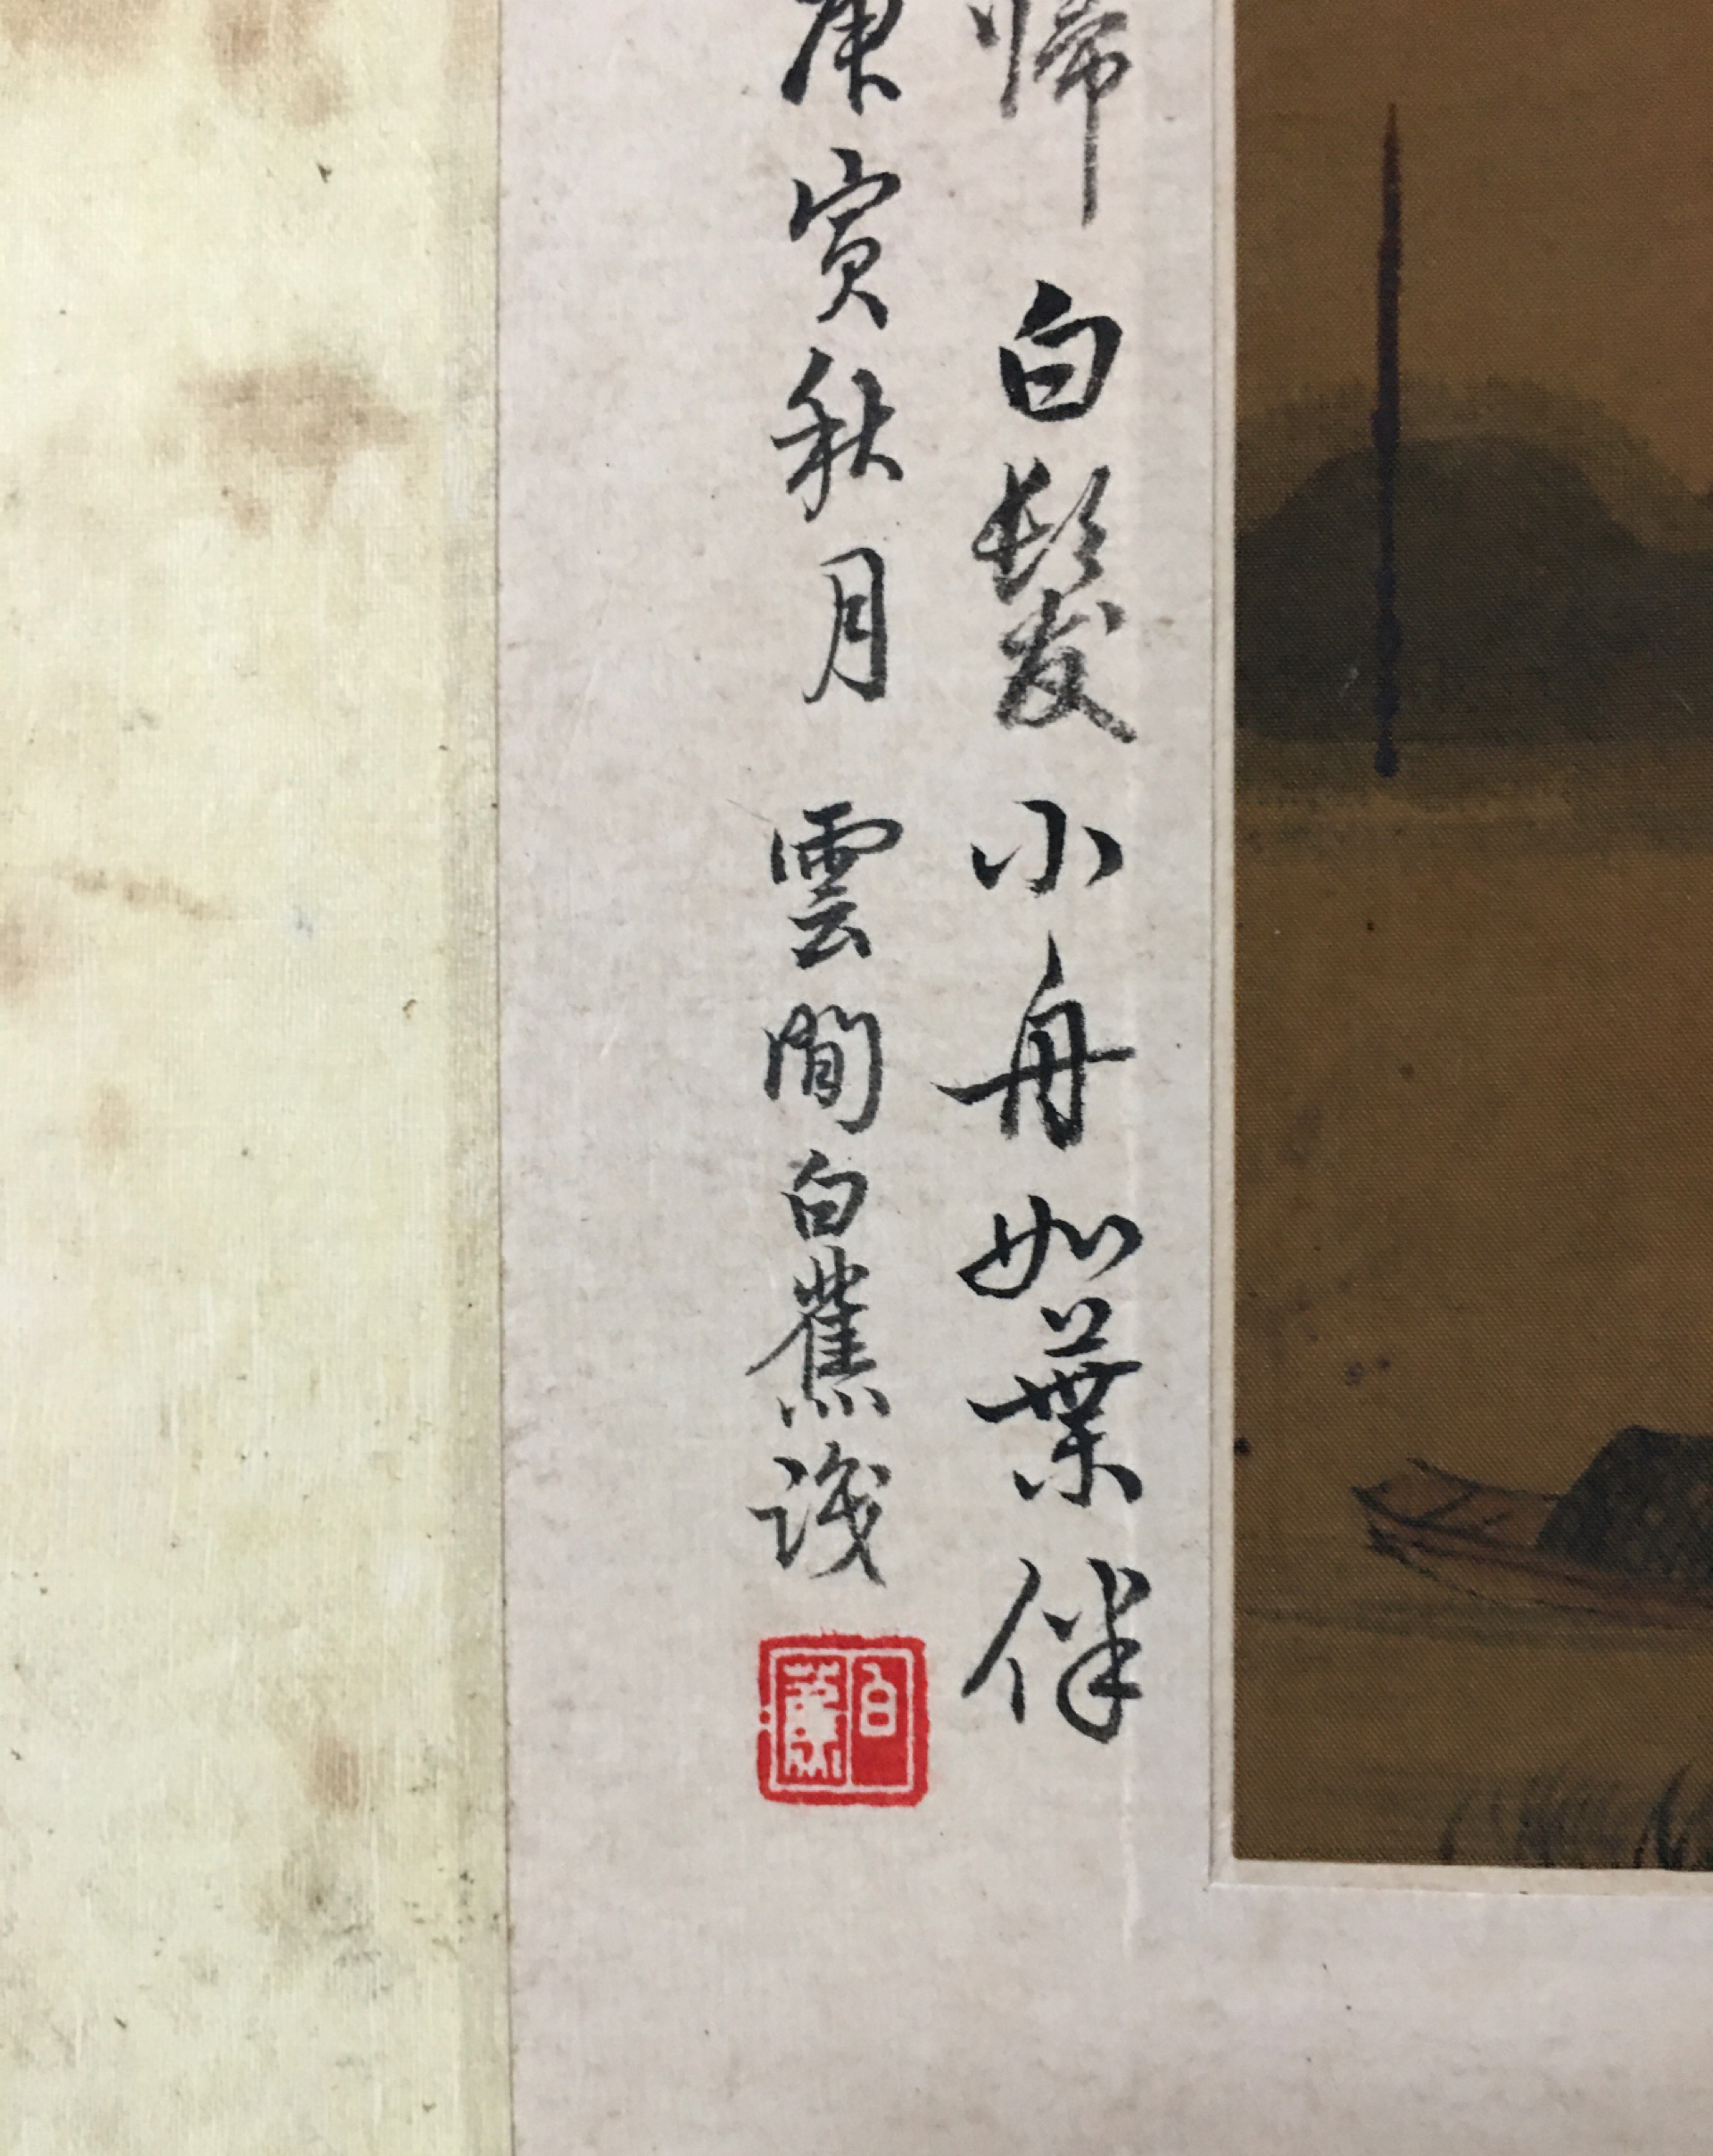 歸白髮小舟如葉伴
庚寅秋月雲間白蕉識
白蕉